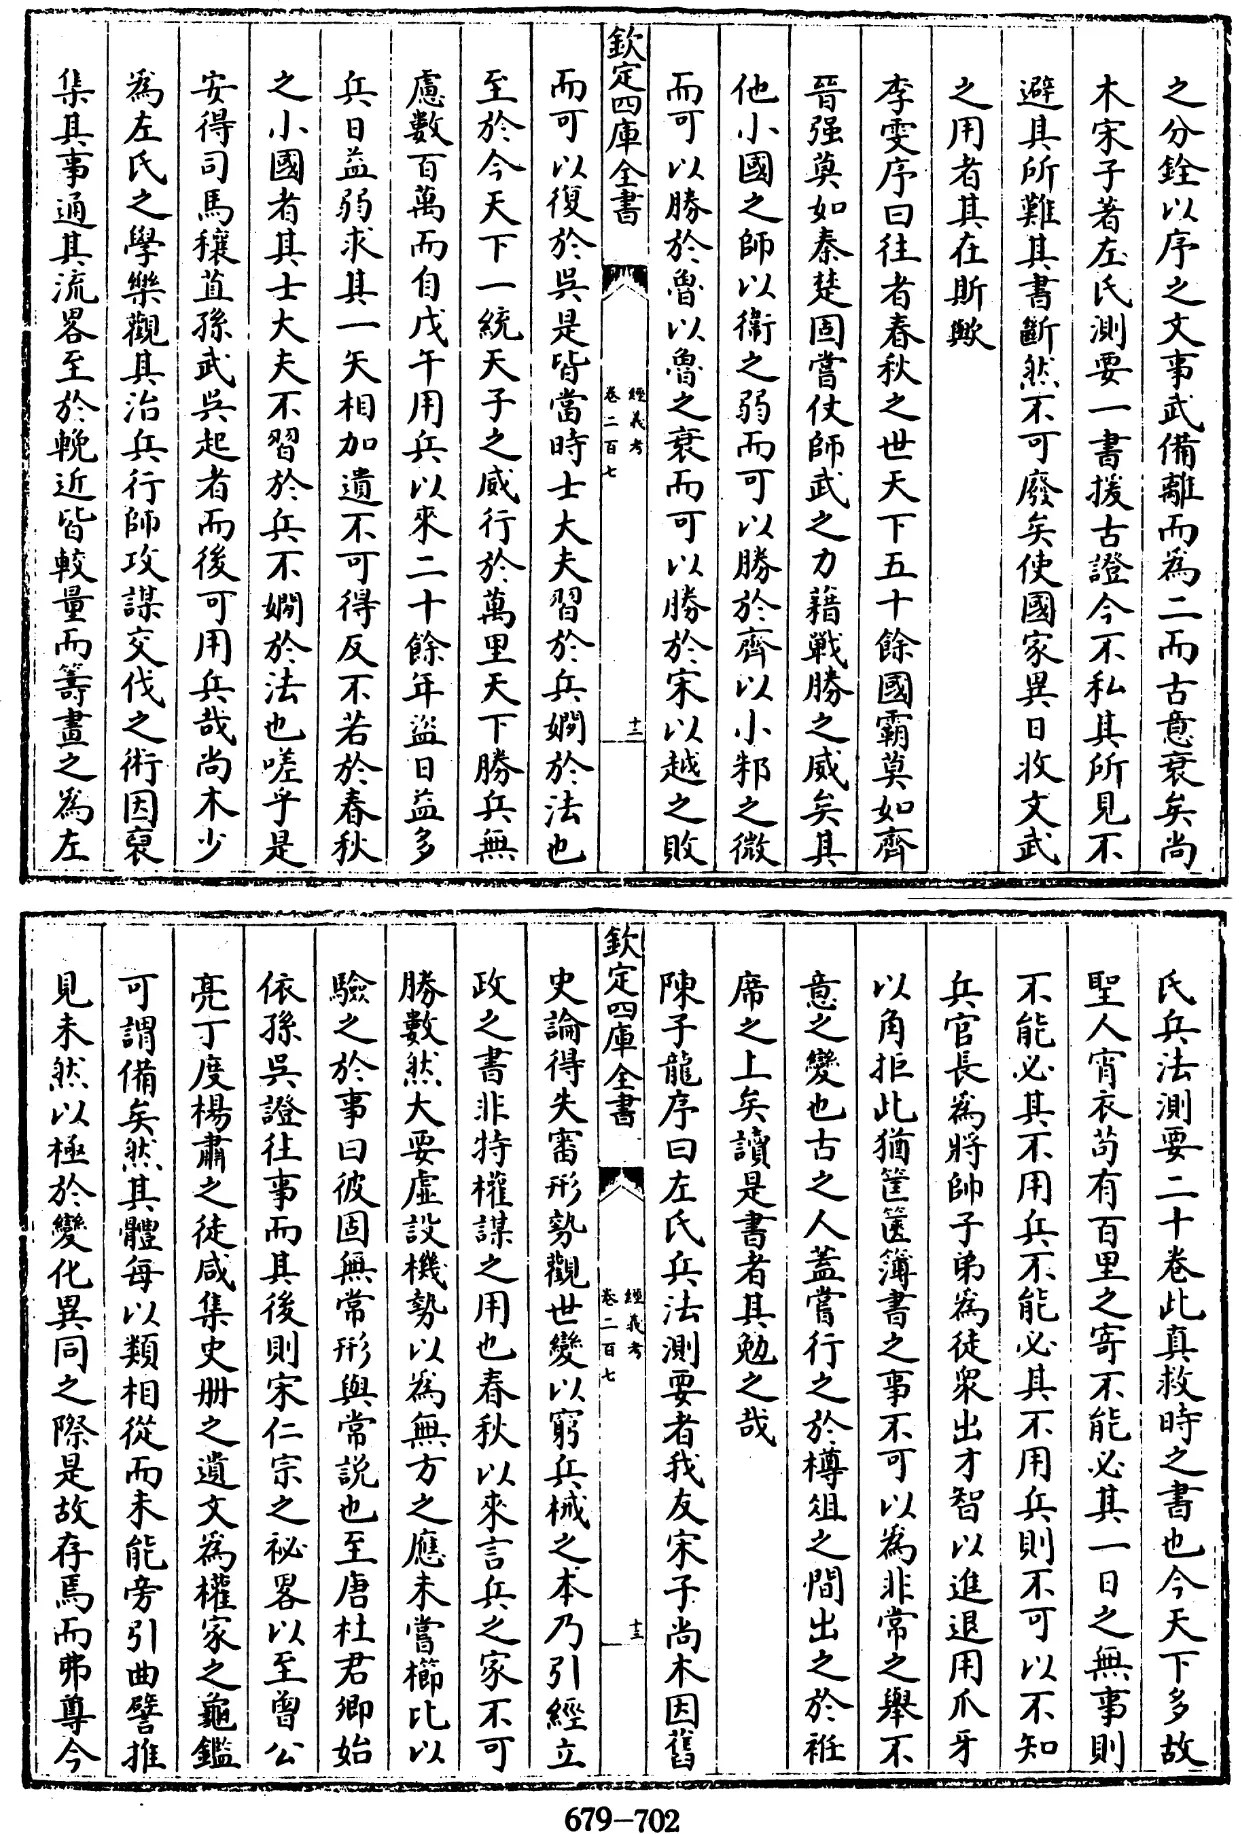 之分銓以序之文事武備離而為二而古意衰矣尚
木宋子著左氏測要一書援古證今不私其所見不
避其所難其書斷然不可廢矣使國家異日收文武
之用者其在斯歟
李雯序曰往者春秋之世天下五十餘國霸莫如齊
晉强莫如秦楚固嘗仗師武之力藉戰勝之威矣其
他小國之師以衛之弱而可以勝於齊以小邾之微
而可以勝於魯以魯之衰而可以勝於宋以越之敗
欽定四庫全書
經義考
卷二百七
十二
而可以復於吳是皆當時士大夫習於兵嫺於法也
至於今天下一統天子之威行於萬里天下勝兵無
慮數百萬而自戊午用兵以來二十餘年盜日益多
兵日益弱求其一矢相加遺不可得反不若於春秋
之小國者其士大夫不習於兵不嫺於法也嗟乎是
安得司馬穰苴孫武吳起者而後可用兵哉尚木少
為左氏之學樂觀其治兵行師攻謀交伐之術因裒
集其事通其流畧至於輓近皆較量而籌畫之為左
氏兵法測要二十卷此真救時之書也今天下多故
聖人宵衣苟有百里之寄不能必其一日之無事則
不能必其不用兵不能必其不用兵則不可以不知
兵官長為將帥子弟為徒衆出才智以進退用爪牙
以角拒此猶筐篋簿書之事不可以為非常之舉不
意之變也古之人蓋嘗行之於樽俎之間出之於袵
席之上矣讀是書者其勉之哉
陳子龍序曰左氏兵法測要者我友宋子尚木因舊
欽定四庫全書
經義考
卷二百七
十三
史論得失審形勢觀世變以窮兵械之本乃引經立
政之書非特權謀之用也春秋以來言兵之家不可
勝數然大要虛設機勢以為無方之應未嘗櫛比以
驗之於事曰彼固無常形與常説也至唐杜君卿始
依孫吳證往事而其後則宋仁宗之祕畧以至曾公
亮丁度楊肅之徒咸集史册之遺文為權家之龜鑑
可謂備矣然其體每以類相從而未能旁引曲譬推
見未然以極於變化異同之際是故存焉而弗尊今
679-702